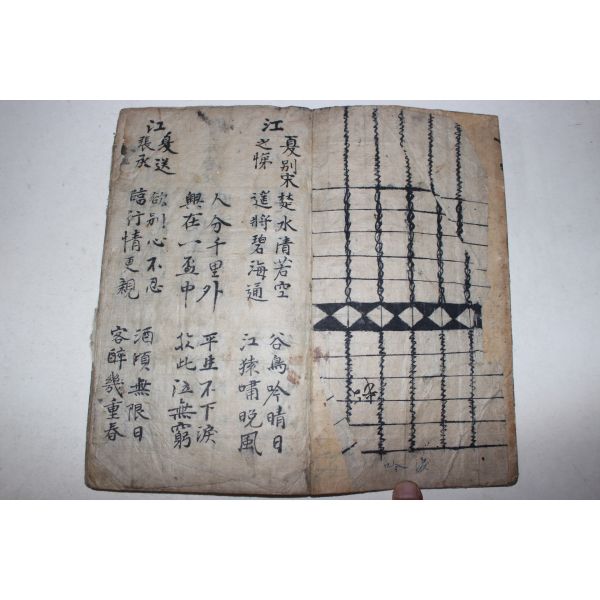 江夏別宋
之悌
楚水清若空
遙將碧海通
人分千里外
興在一盃中
谷鳥吟晴日
江猿嘯晚風
平生不下淚
扵此泣無窮
江夏送
張丞
欲別心不忍
臨行情更親
酒頃無限日
客醉幾重春